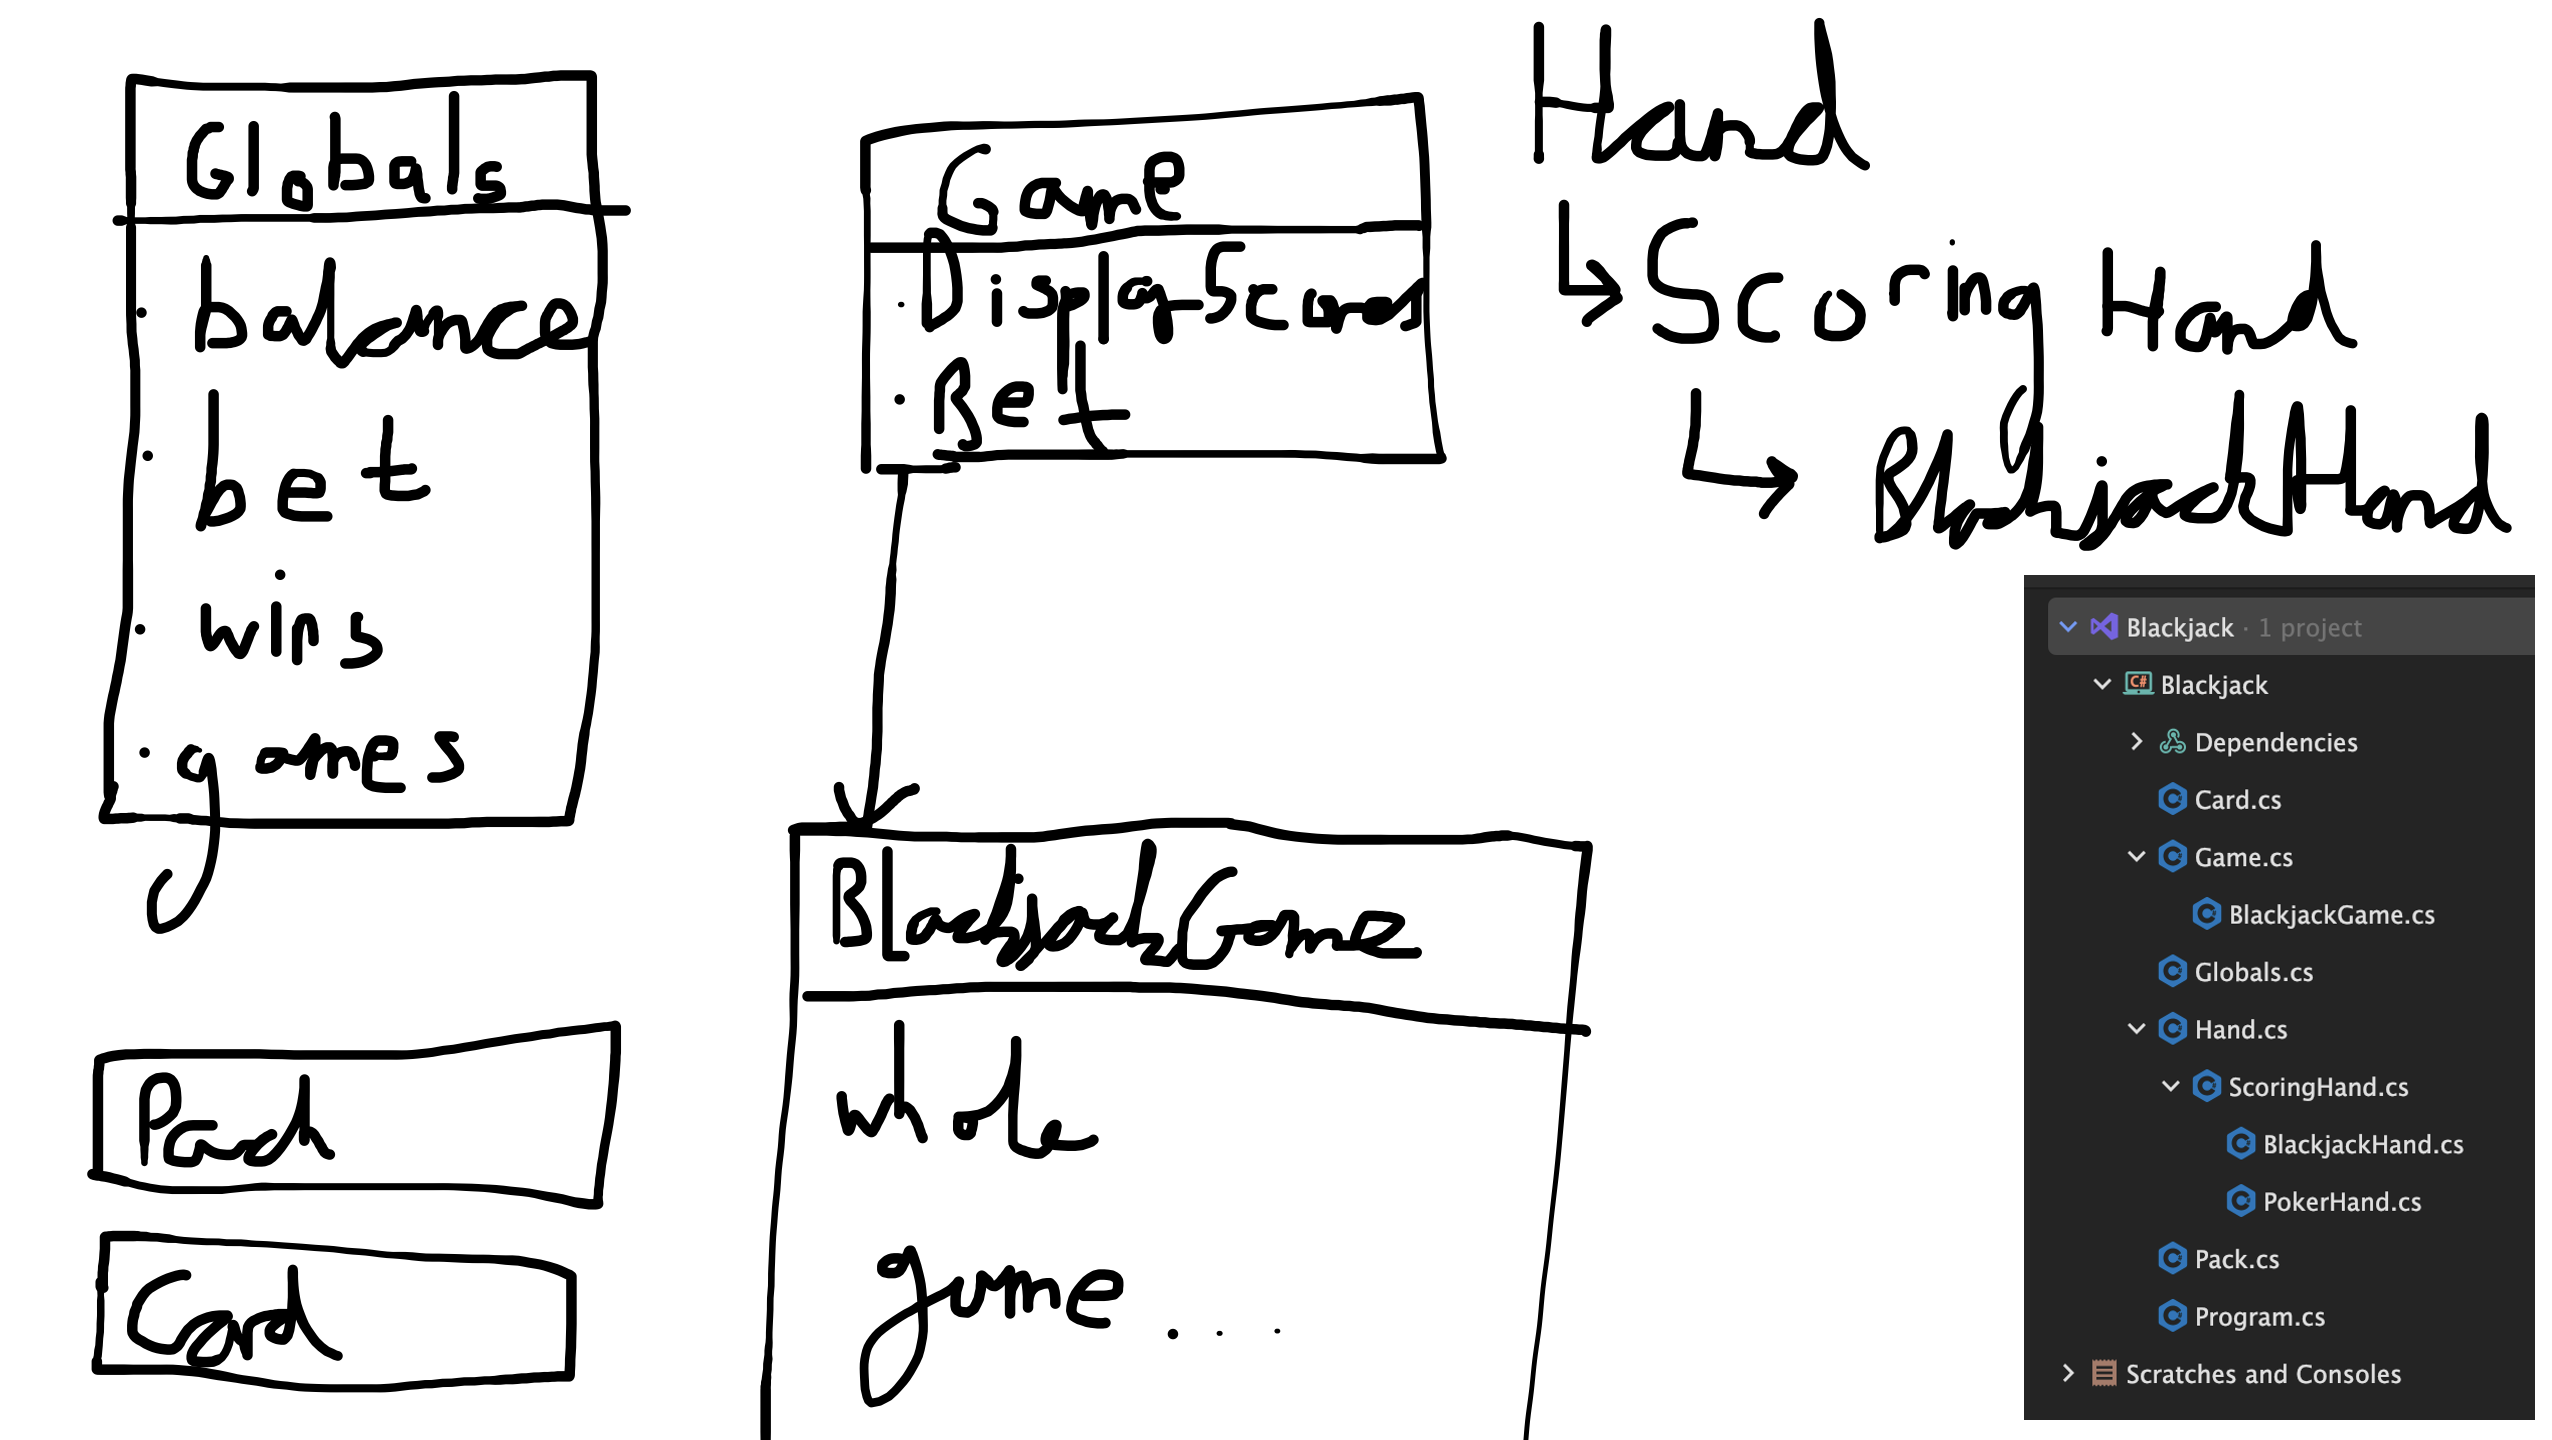 Globals
· balance
· bet
· wins
· games
Pack
Card
Game
· DisplayScores
· Bet
BlackjackGame
whole
game ...
Hand
↳ Scoring Hand
↳ BlackjackHand
Blackjack · 1 project
Blackjack
Dependencies
Card.cs
Game.cs
BlackjackGame.cs
Globals.cs
Hand.cs
ScoringHand.cs
BlackjackHand.cs
PokerHand.cs
Pack.cs
Program.cs
Scratches and Consoles